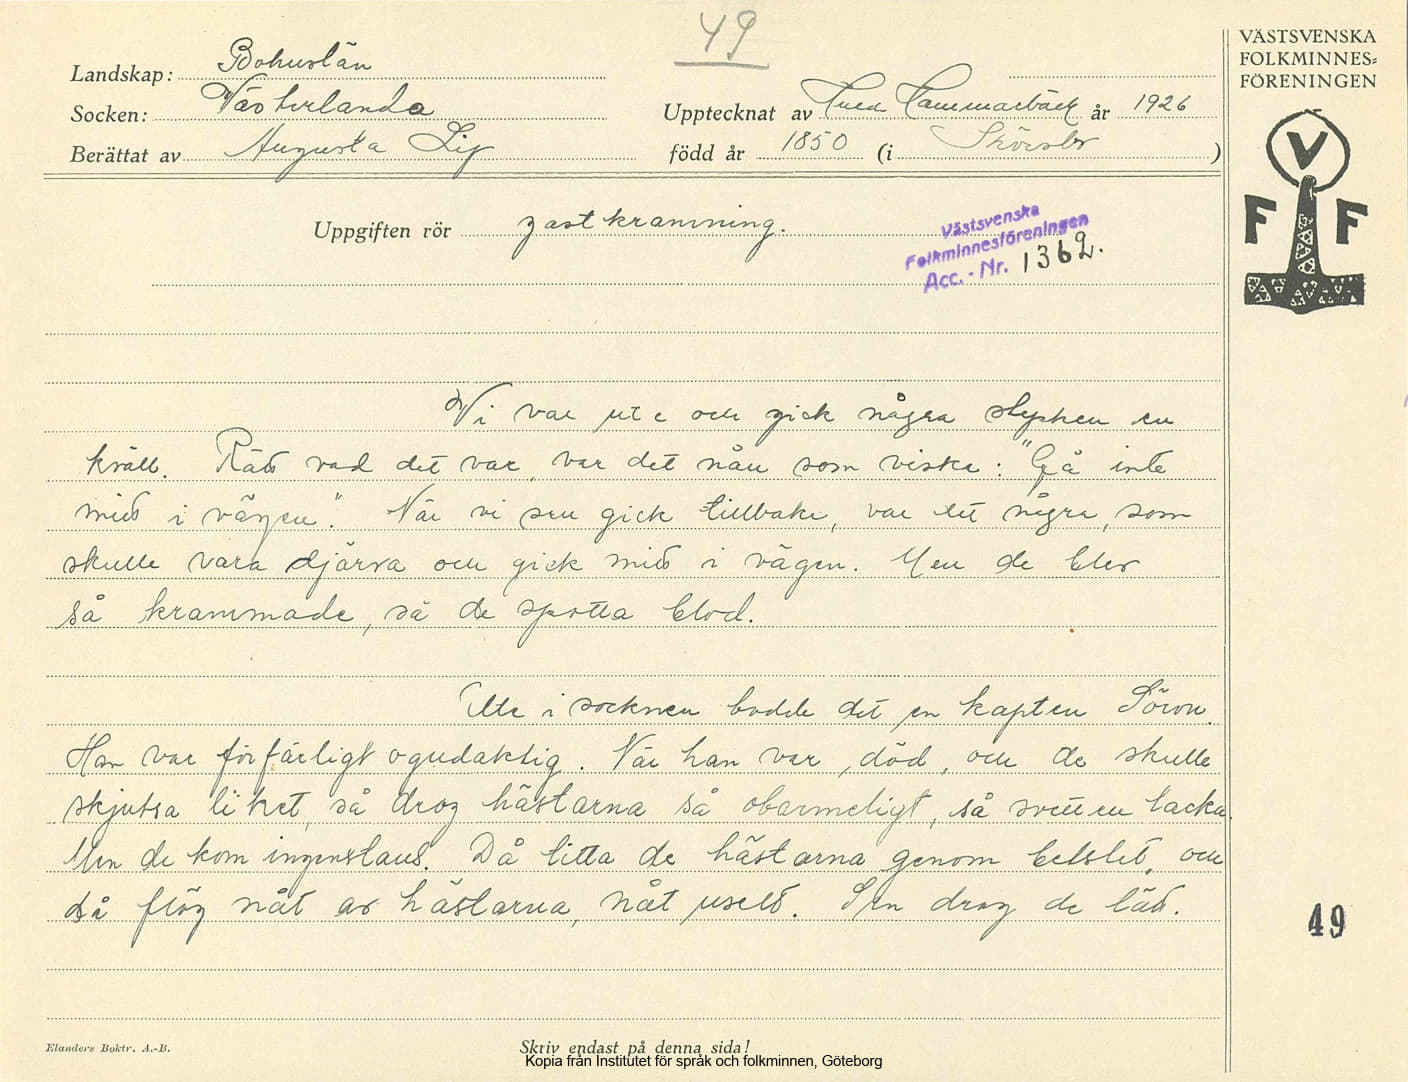 49
VÄSTSVENSKA
FOLKMINNES=
FÖRENINGEN
V
F F
Landskap: Bohuslän
Socken: Västerlanda
Upptecknat av Tura Hammarbäck år 1926
Berättat av Augusta Lij
född år 1850 (i )
Uppgiften rör gastkramning.
Västsvenska
Folkminnesföreningen
Acc.-Nr. 1362.
Vi var ute och gick några stycken en
kväll. Rätt vad det var, var det nån som viska: "Gå inte
mitt i vägen". När vi sen gick tillbaka, var det några, som
skulle vara djärva och gick mitt i vägen. Men de blev
så krammade, så de spotta blod.
Ute i socknen bodde det en kapten Sörön.
Han var förfärligt ogudaktig. När han var död, och de skulle
skjutsa liket, så drog hästarna så obarmeligt, så svetten lacka.
Men de kom ingenstans. Då titta de hästarna genom betslet, och
då flög nåt av hästarna, nåt uselt. Sen drog de lätt.
49
Elanders Boktr. A.-B.
Skriv endast på denna sida!
Kopia från Institutet för språk och folkminnen, Göteborg